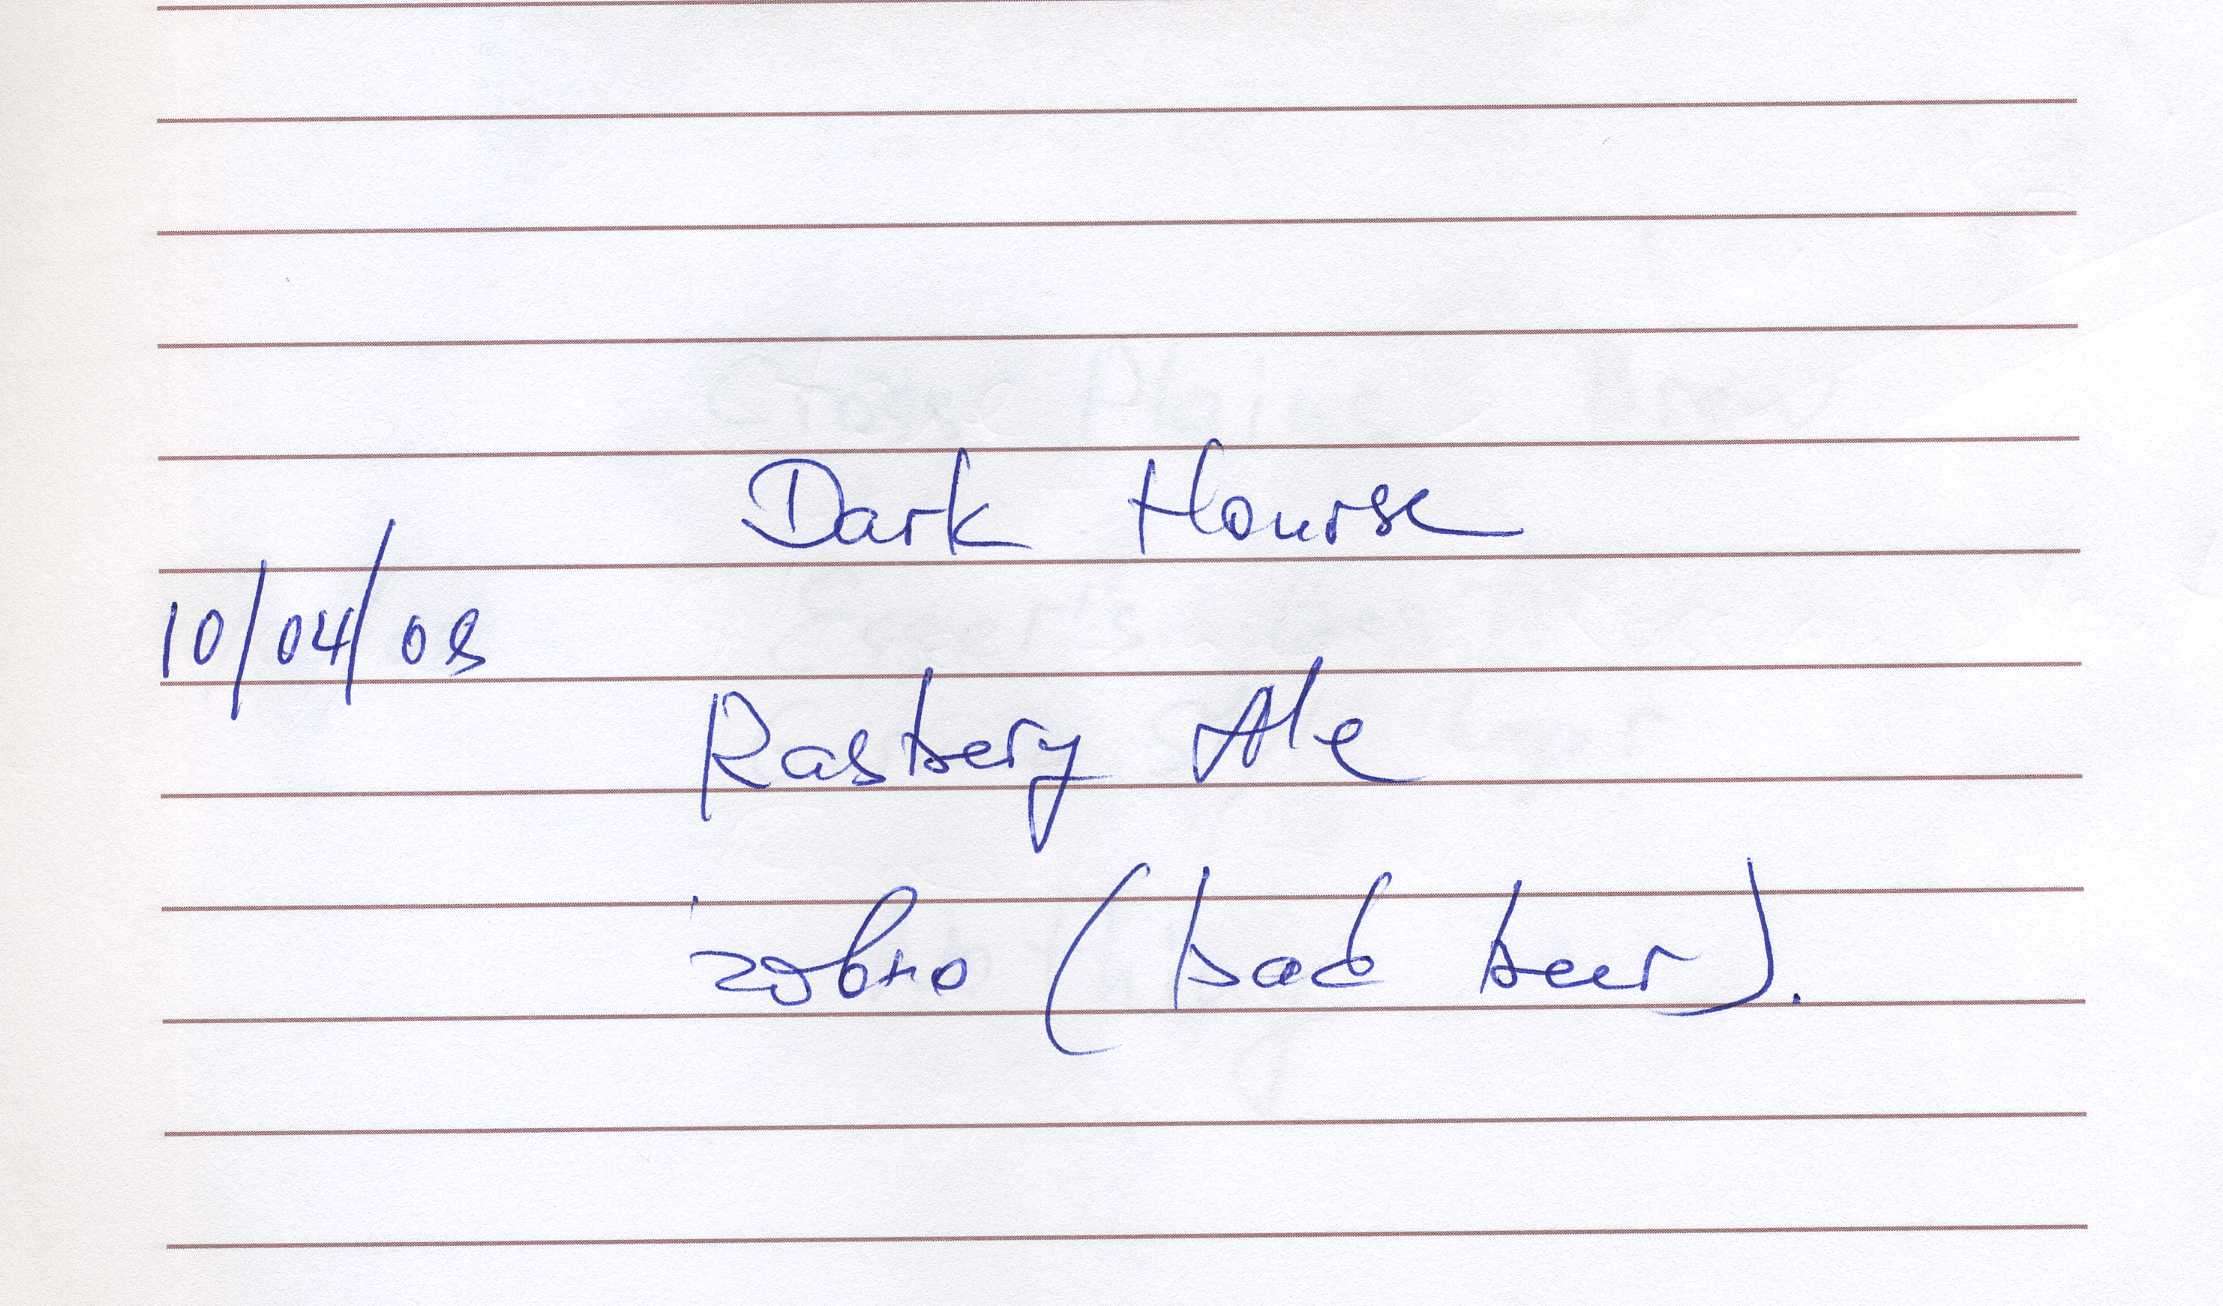 Dark Hourse
10/04/08
Rasbery Ale
говно (bad beer).